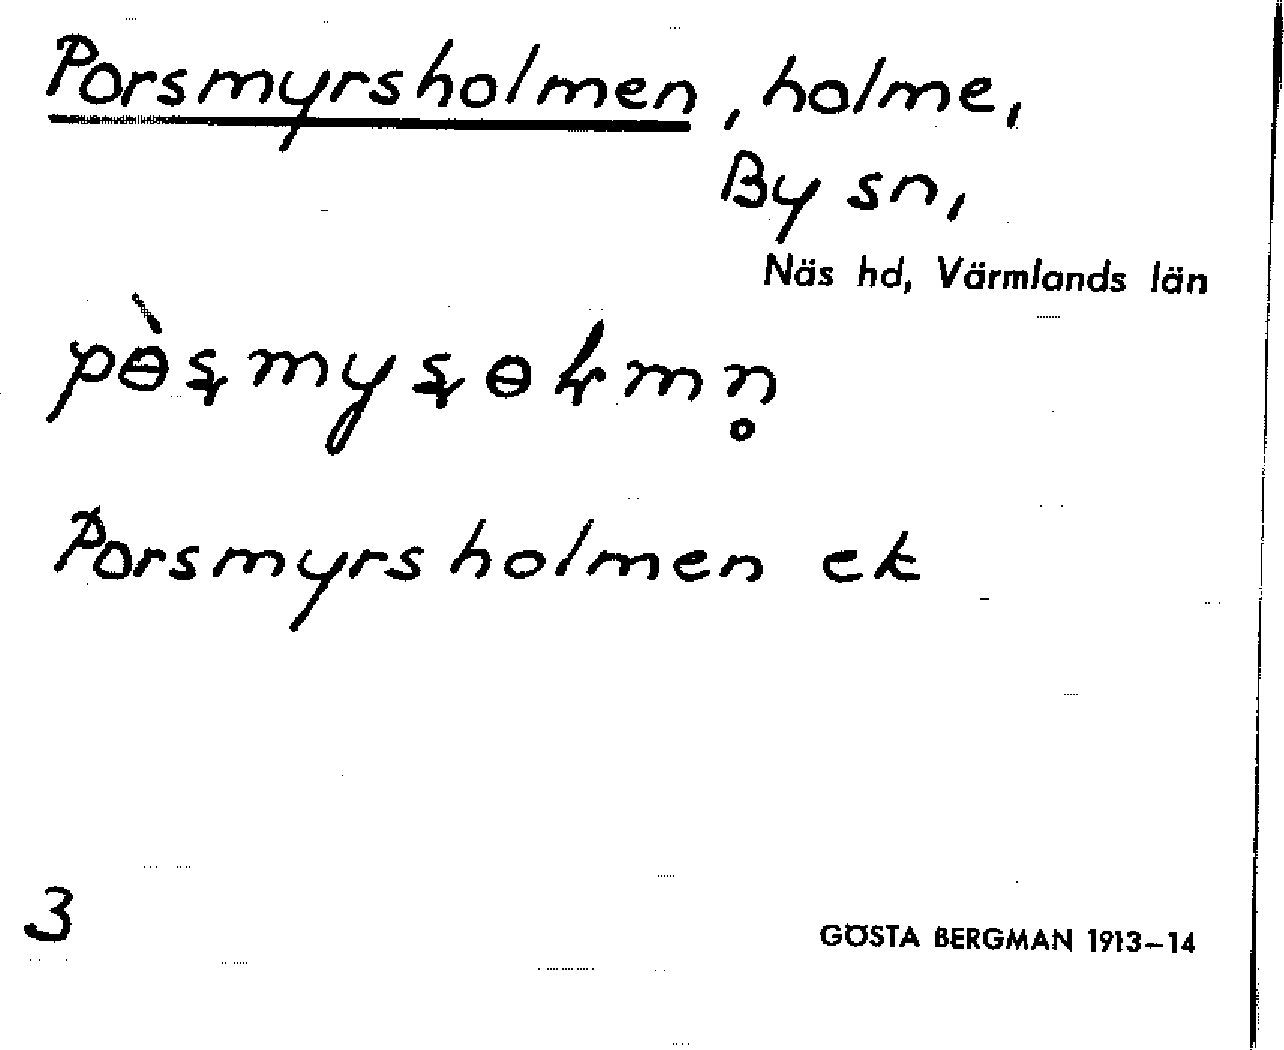 Porsmyrsholmen, holme,
By sn,
Näs hd, Värmlands län
Porsmyrsholmen ek
3
GÖSTA BERGMAN 1913–14